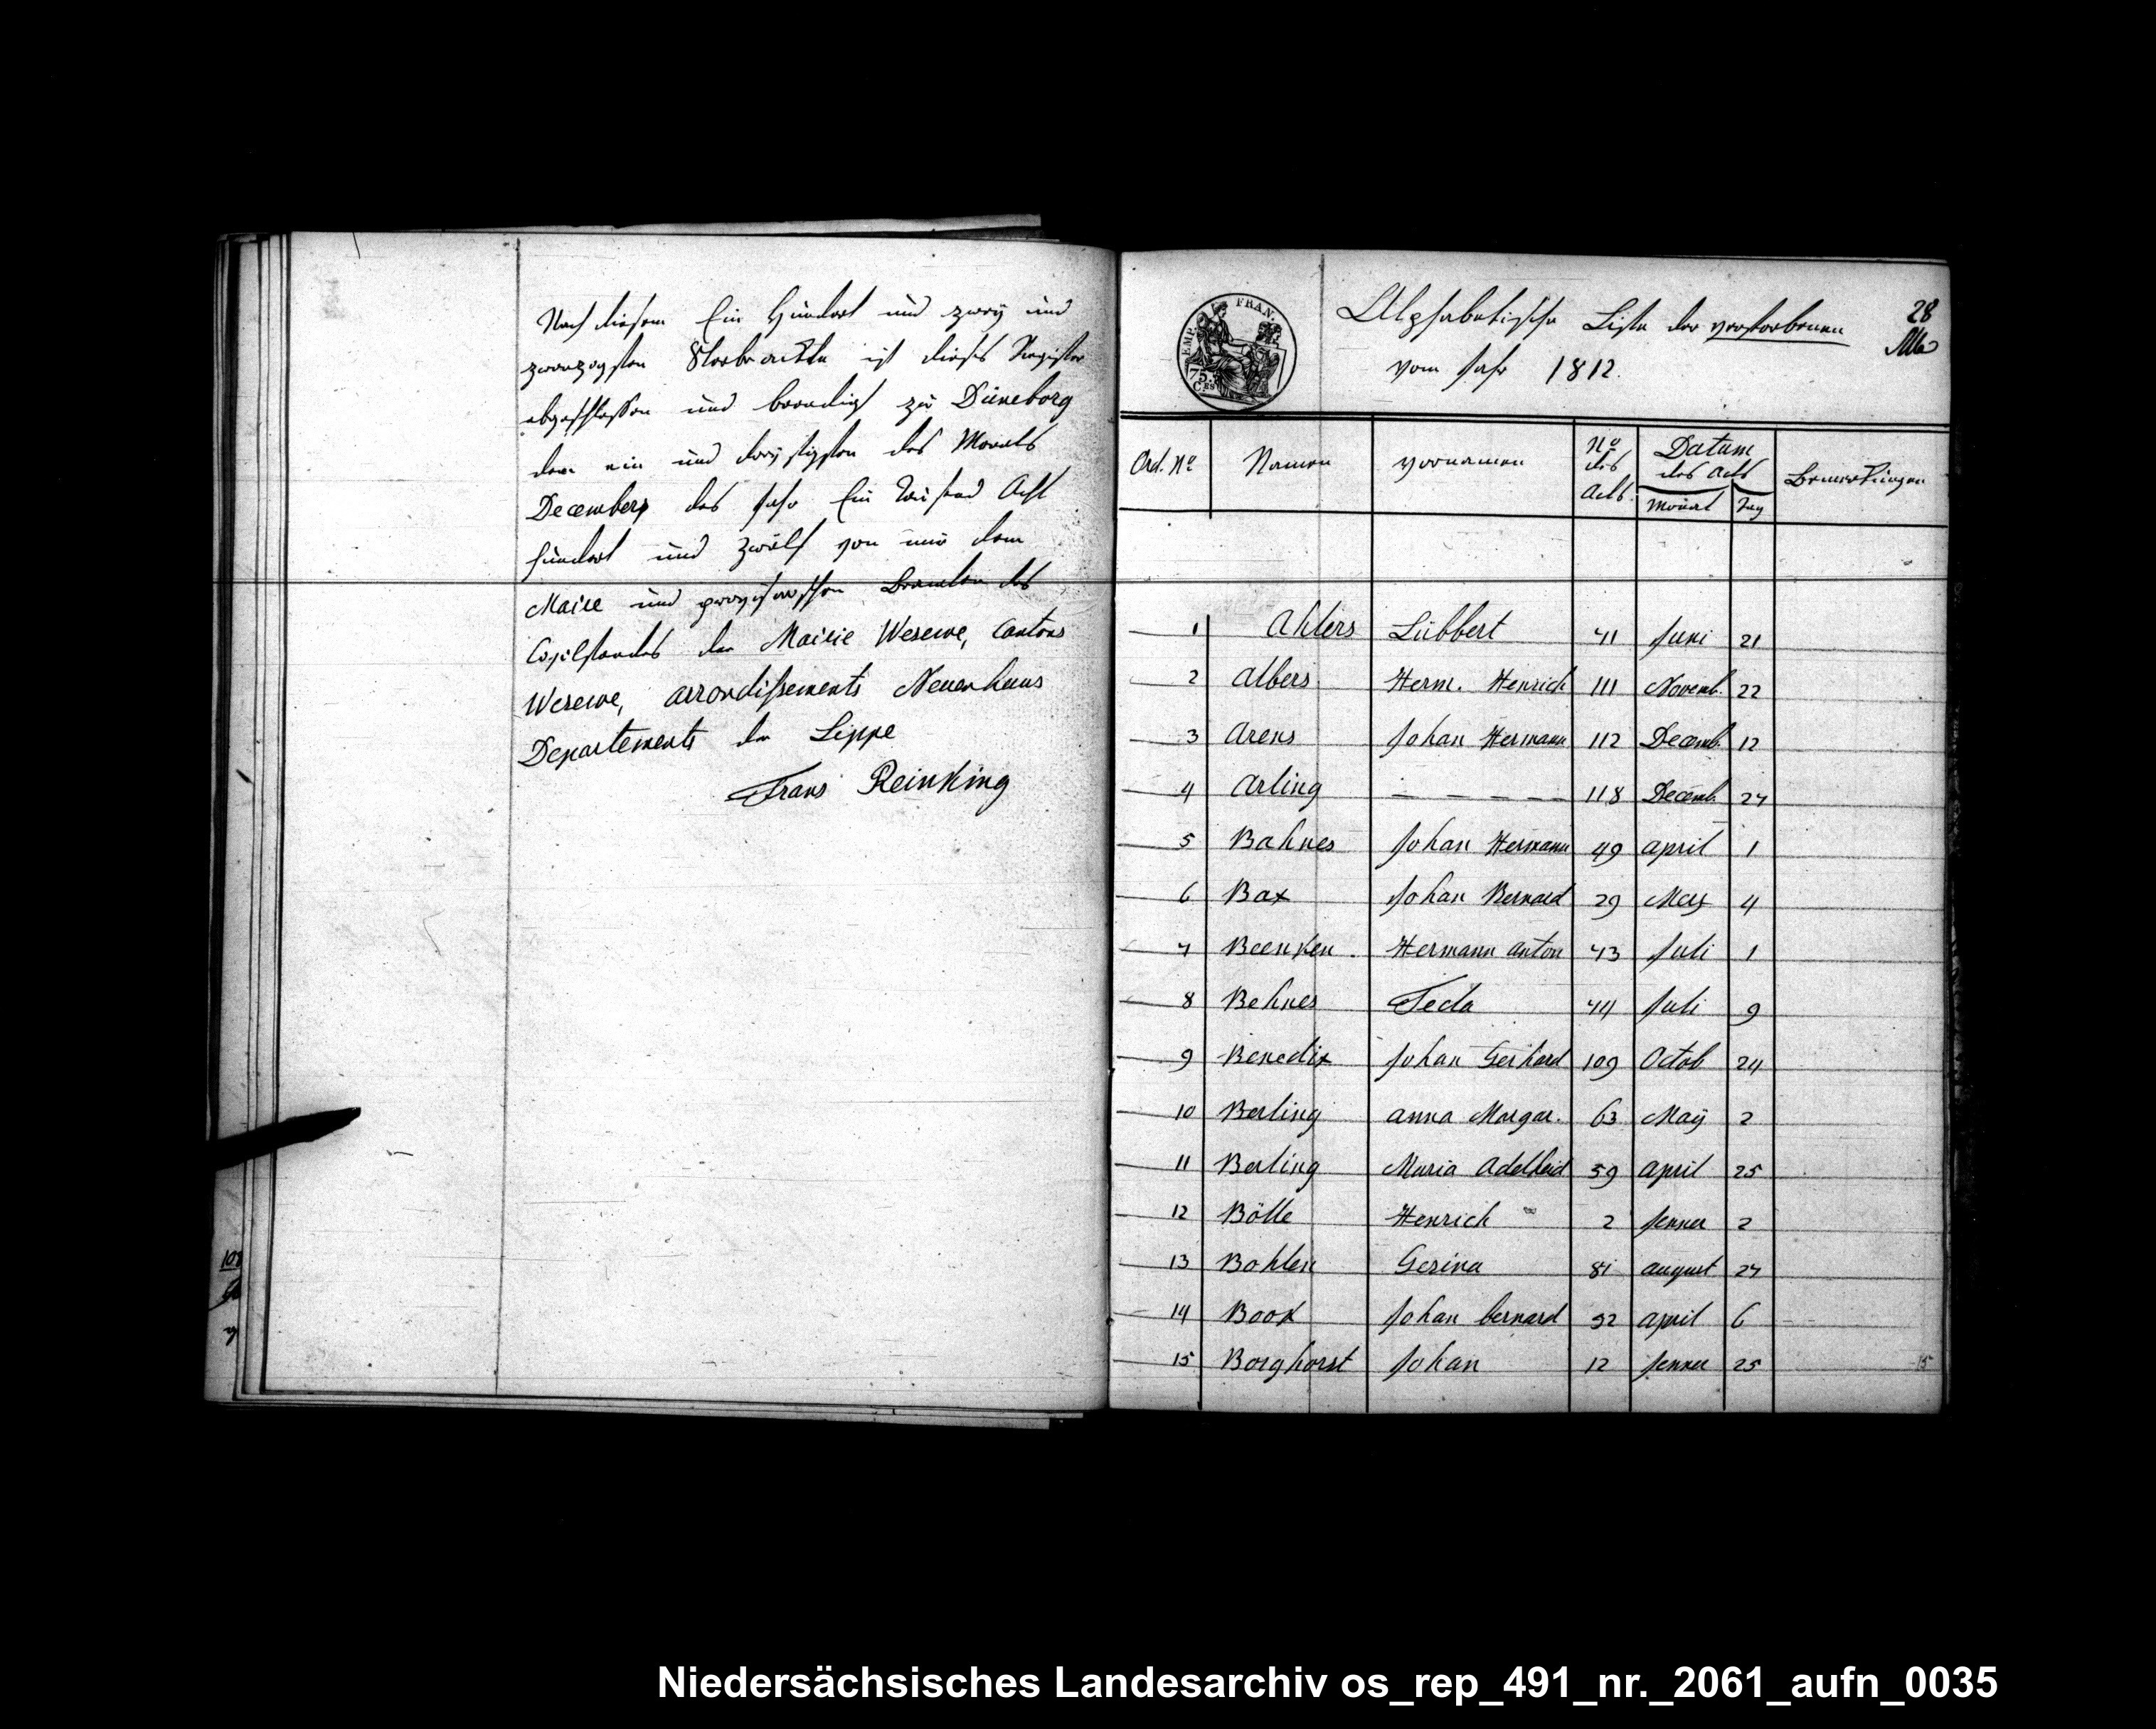 Nach diesem Ein Hundert und zwey und
zwanzigsten Sterbe actte ist dieses Register
abgeschlossen und beendigt zu Düneborg
den ein und dreysigsten des Monats
Decembers des Jahr Ein Tausend Acht
hundert und zwölf von mir dem
Maire und provisorischen Beamten des
Civilstandes der Mairie Wesewe, Cantons
Wesewe, arrondissements Neuenhaus
Departements der Lippe
Frans Reinking
28
EMP. FRAN.
75
C.ES
Alphabetische Liste der verstorbenen
vom Jahr 1812.
Ord. No Namen vornamen No des Acts Datum des Acts Monat Tag Bemerkungen
1 Ahlers Lübbert 71 Juni 21
2 Albers Herm. Henrich 111 Novemb. 22
3 Arens Johan Hermann 112 Decemb. 12
4 Arling — — — — 118 Decemb. 27
5 Bahnes Johan Hermann 49 april 1
6 Bax Johan Bernard 29 Merz 4
7 Beenken Hermann anton 73 Juli 1
8 Behnes Teda 74 Juli 9
9 Benedix Johan Gerhard 109 Octob 24
10 Berling anna Margar. 63 Maÿ 2
11 Berling Maria Adelheid 59 april 25
12 Bölle Henrich 2 Jenner 2
13 Bohlen Gesina 81 august 27
14 Book Johan bernard 52 april 6
15 Borghorst Johan 12 Jenner 25
15
108
Niedersächsisches Landesarchiv os_rep_491_nr._2061_aufn_0035